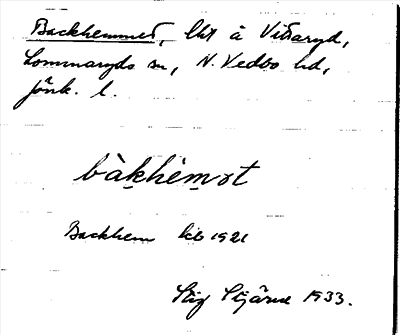 Backhemmet, lht å Vidaryd,
Lommaryds sn, N. Vedbo hd,
Jönk. l.
bàkhèmət
Backhem 1921
Stig Stjärne 1933.